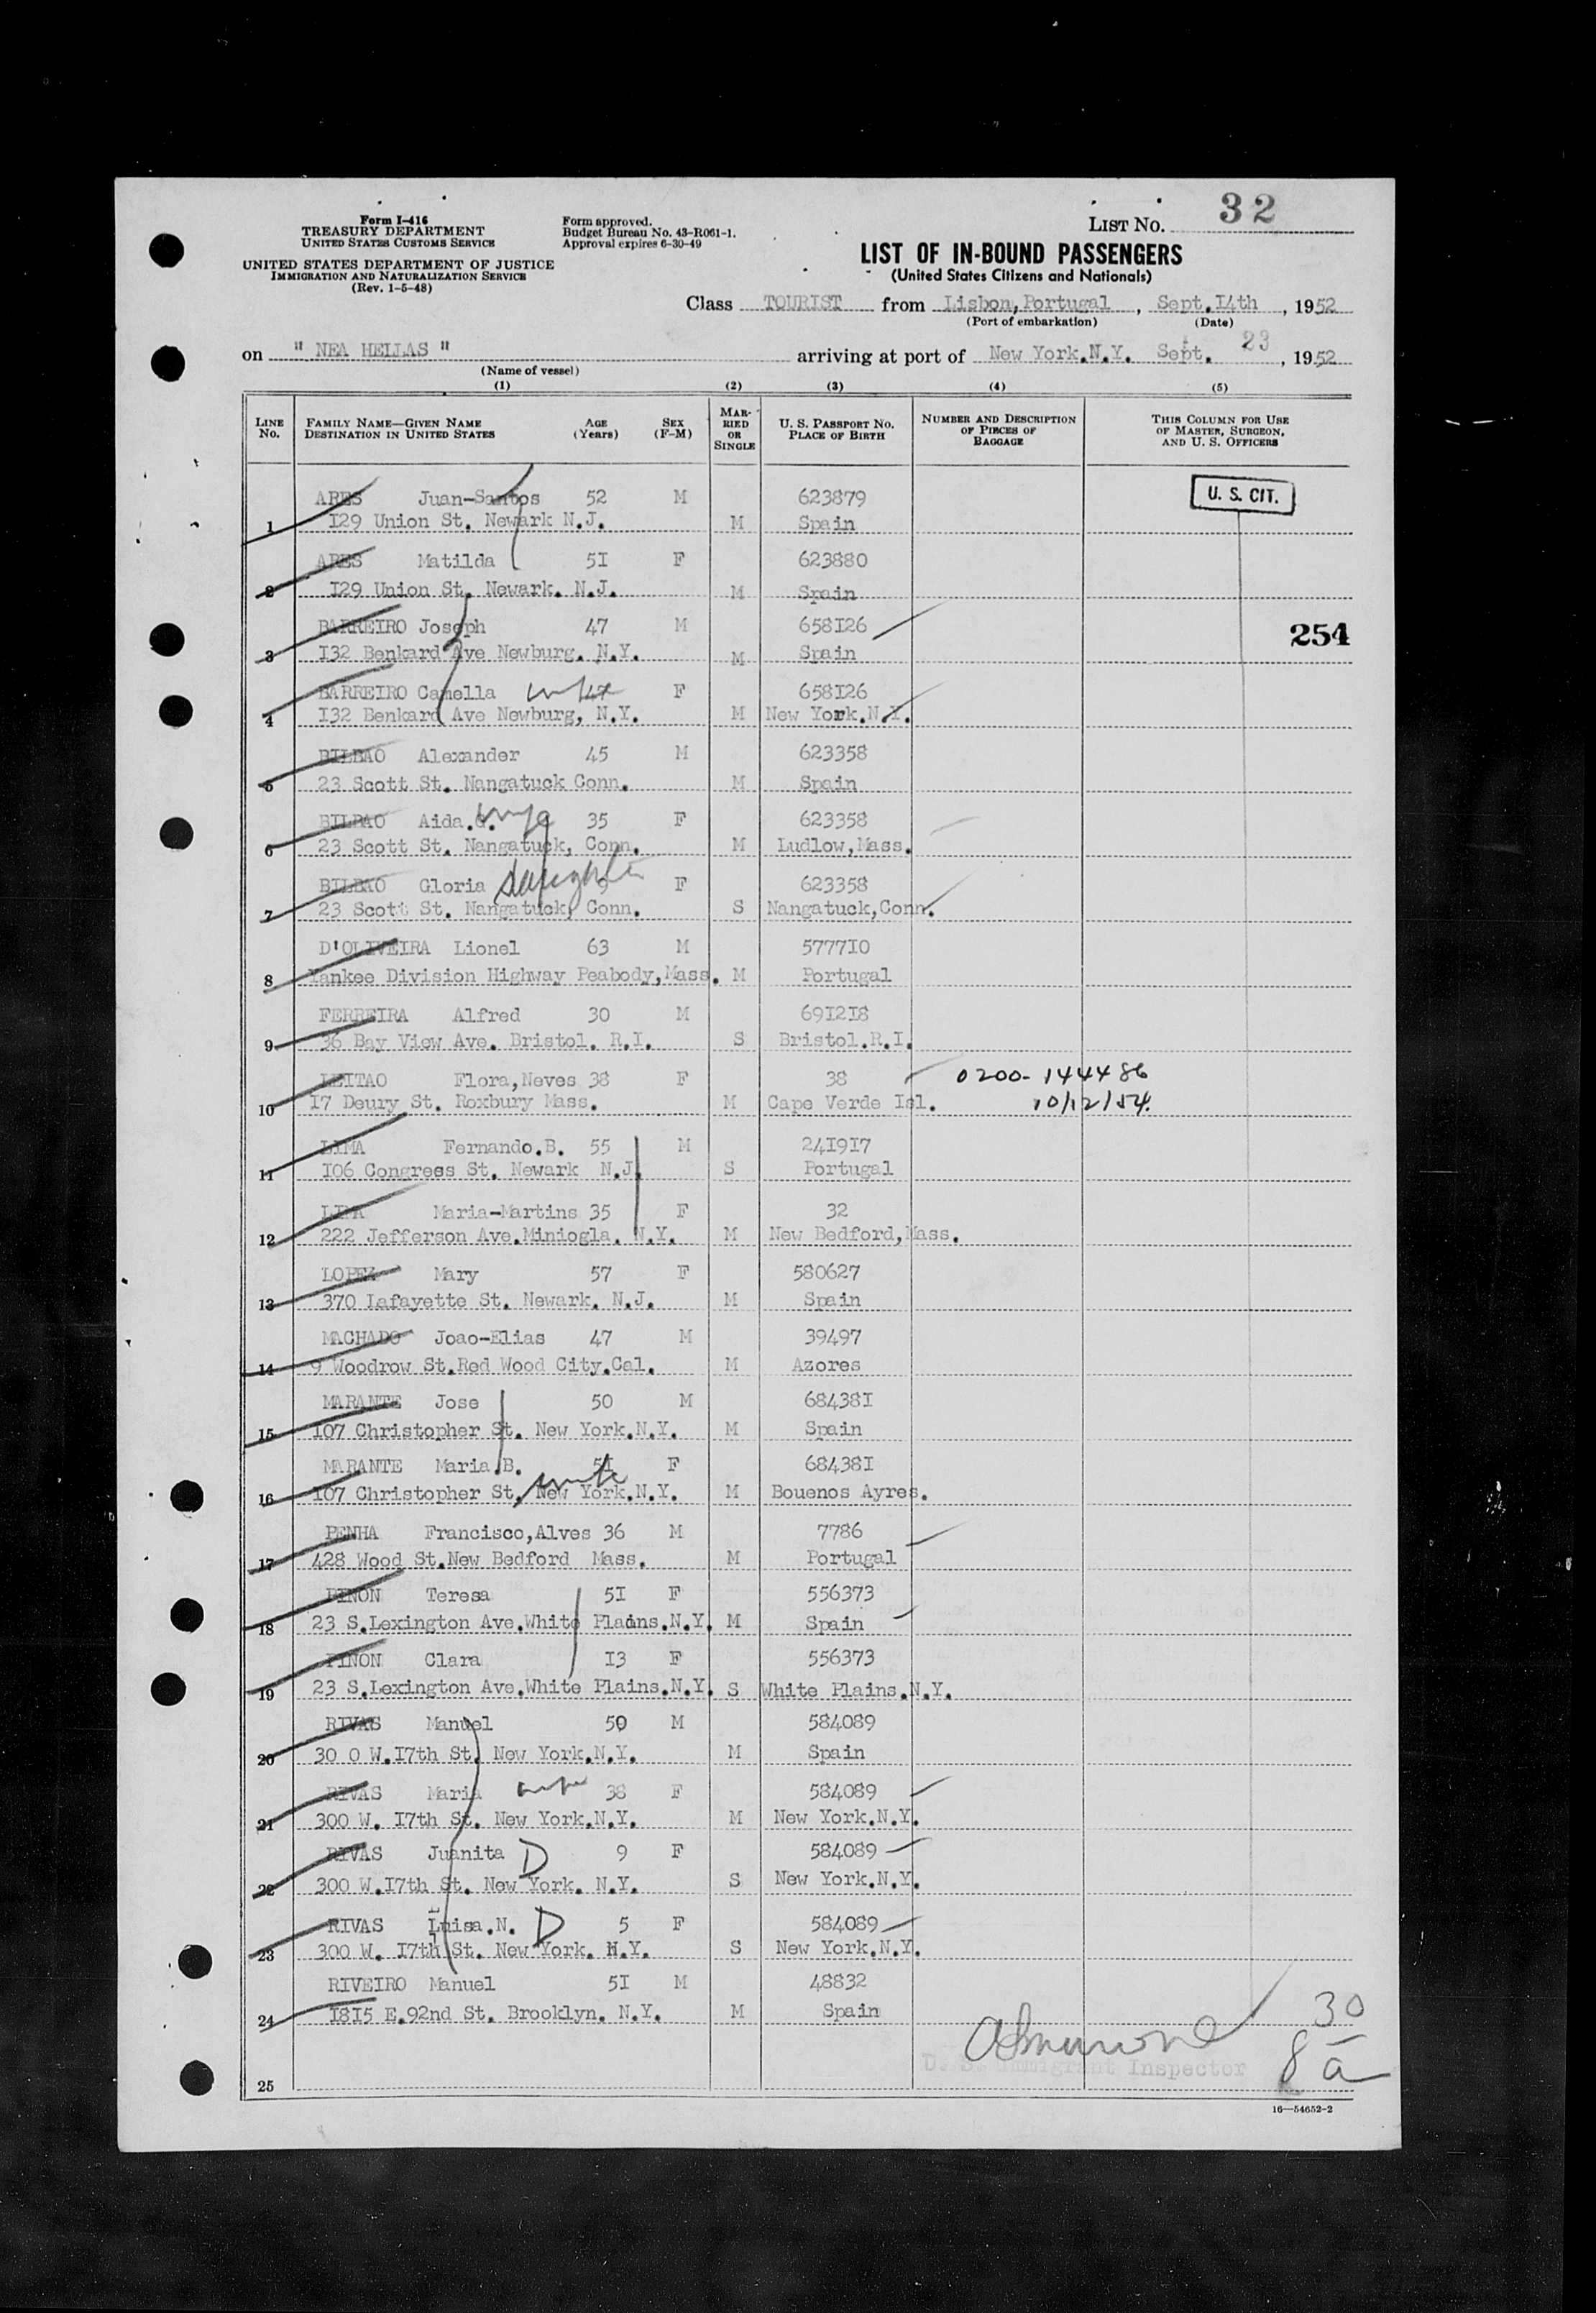 Form I-416
TREASURY DEPARTMENT
UNITED STATES CUSTOMS SERVICE
UNITED STATES DEPARTMENT OF JUSTICE
IMMIGRATION AND NATURALIZATION SERVICE
(Rev. 1-5-48)
Form approved.
Budget Bureau No. 43-R061-1.
Approval expires 6-30-49
LIST No. 32
LIST OF IN-BOUND PASSENGERS
(United States Citizens and Nationals)
Class TOURIST from Lisbon,Portugal , Sept.I4th , 1952
(Port of embarkation) (Date)
on " NEA HELLAS " arriving at port of New York.N.Y. Sept. 23 , 1952
(Name of vessel)
(1) (2) (3) (4) (5)
LINE No. FAMILY NAME—GIVEN NAME DESTINATION IN UNITED STATES AGE (Years) SEX (F-M) MARRIED OR SINGLE U. S. PASSPORT No. PLACE OF BIRTH NUMBER AND DESCRIPTION OF PIECES OF BAGGAGE THIS COLUMN FOR USE OF MASTER, SURGEON, AND U. S. OFFICERS
U. S. CIT.
ARES Juan-Santos 52 M 623879
1 I29 Union St. Newark N.J. M Spain
ARES Matilda 5I F 623880
2 I29 Union St. Newark. N.J. M Spain
BARREIRO Joseph 47 M 658I26
254
3 I32 Benkard Ave Newburg. N.Y. M Spain
BARREIRO Camella wife 47 F 658I26
4 I32 Benkard Ave Newburg, N.Y. M New York.N.Y.
BILBAO Alexander 45 M 623358
5 23 Scott St. Nangatuck Conn. M Spain
BILBAO Aida.G. wife 35 F 623358
6 23 Scott St. Nangatuck, Conn. M Ludlow,Mass.
BILBAO Gloria daughter F 623358
7 23 Scott St. Nangatuck, Conn. S Nangatuck,Conn.
D'OLIVEIRA Lionel 63 M 5777IO
8 Yankee Division Highway Peabody,Mass. M Portugal
FERREIRA Alfred 30 M 69I2I8
9 36 Bay View Ave. Bristol. R.I. S Bristol.R.I.
LEITAO Flora,Neves 38 F 38 0200-144486
10 I7 Deury St. Roxbury Mass. M Cape Verde Isl. 10/12/54.
LIMA Fernando.B. 55 M 24I9I7
11 I06 Congress St. Newark N.J. S Portugal
LIMA Maria-Martins 35 F 32
12 222 Jefferson Ave.Miniogla. N.Y. M New Bedford,Mass.
LOPEZ Mary 57 F 580627
13 370 Lafayette St. Newark. N.J. M Spain
MACHADO Joao-Elias 47 M 39497
14 9 Woodrow St.Red Wood City.Cal. M Azores
MARANTE Jose 50 M 68438I
15 I07 Christopher St. New York.N.Y. M Spain
MARANTE Maria.B. 5I F 68438I
16 I07 Christopher St. New York.N.Y. wife M Bouenos Ayres.
PENHA Francisco,Alves 36 M 7786
17 428 Wood St.New Bedford Mass. M Portugal
PINON Teresa 5I F 556373
18 23 S.Lexington Ave.White Plains.N.Y. M Spain
PINON Clara I3 F 556373
19 23 S.Lexington Ave.White Plains.N.Y. S White Plains.N.Y.
RIVAS Manuel 50 M 584089
20 30 0 W.I7th St. New York.N.Y. M Spain
RIVAS Maria wife 38 F 584089
21 300 W. I7th St. New York.N.Y. M New York.N.Y.
RIVAS Juanita D 9 F 584089
22 300 W.I7th St. New York. N.Y. S New York.N.Y.
RIVAS Luisa.N. D 5 F 584089
23 300 W. I7th St. New York. N.Y. S New York.N.Y.
RIVEIRO Manuel 5I M 48832
24 I8I5 E.92nd St. Brooklyn. N.Y. M Spain
30
8 a
Immigrant Inspector
25
16—54652-2